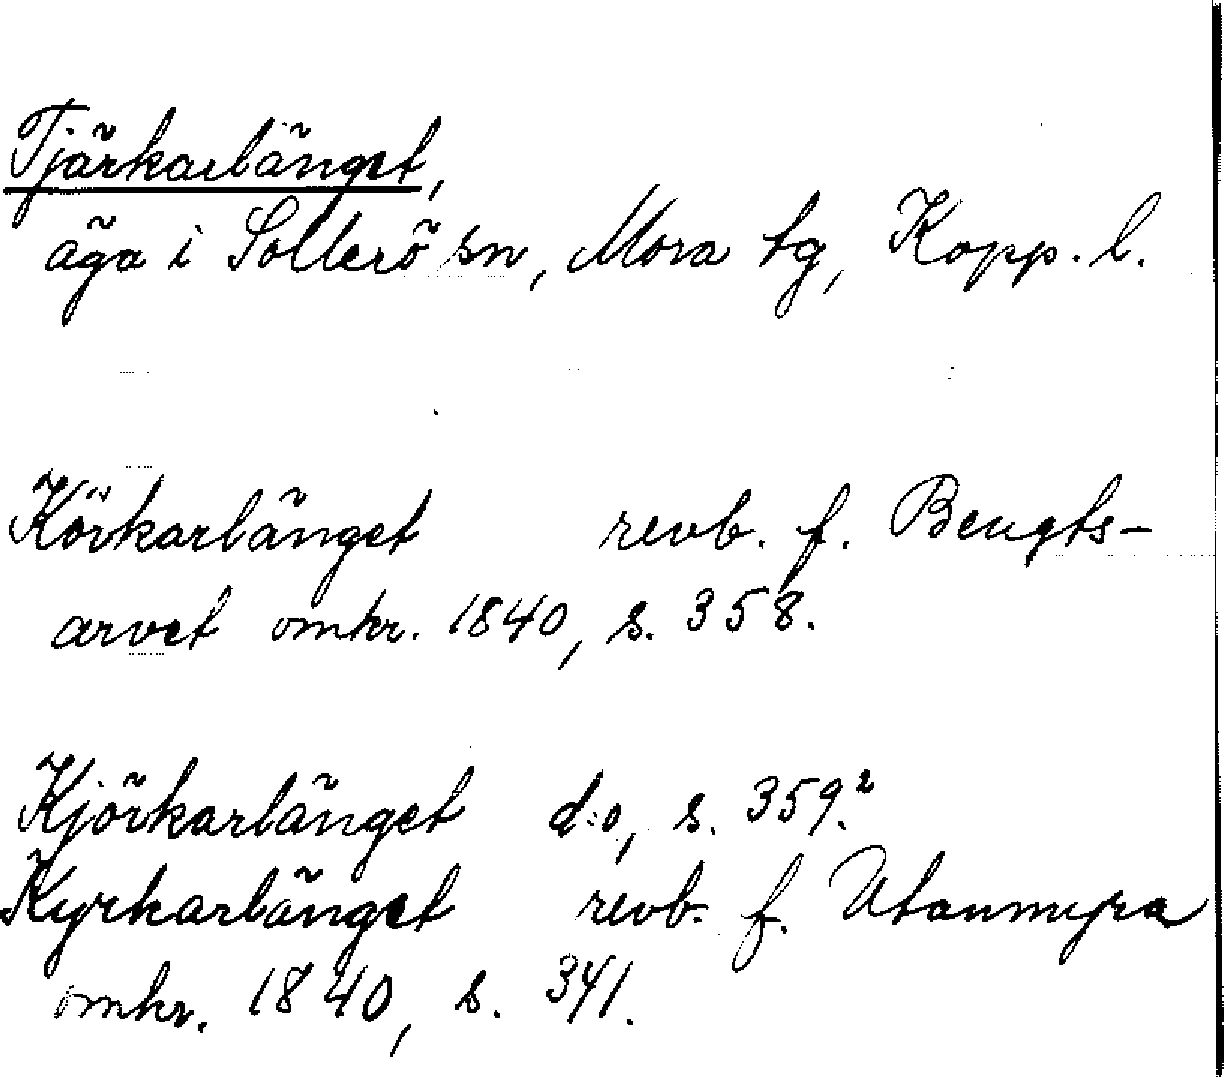 Tjärkarlänget,
äga i Sollerö sn, Mora tg, Kopp. l.
Körkarlänget revb. f. Bengts-
arvet omkr. 1840, s. 358.
Kjörkarlänget d:o, s. 359.²
Kyrkarlänget revb. f. Utanmyra
omkr. 1840, s. 341.